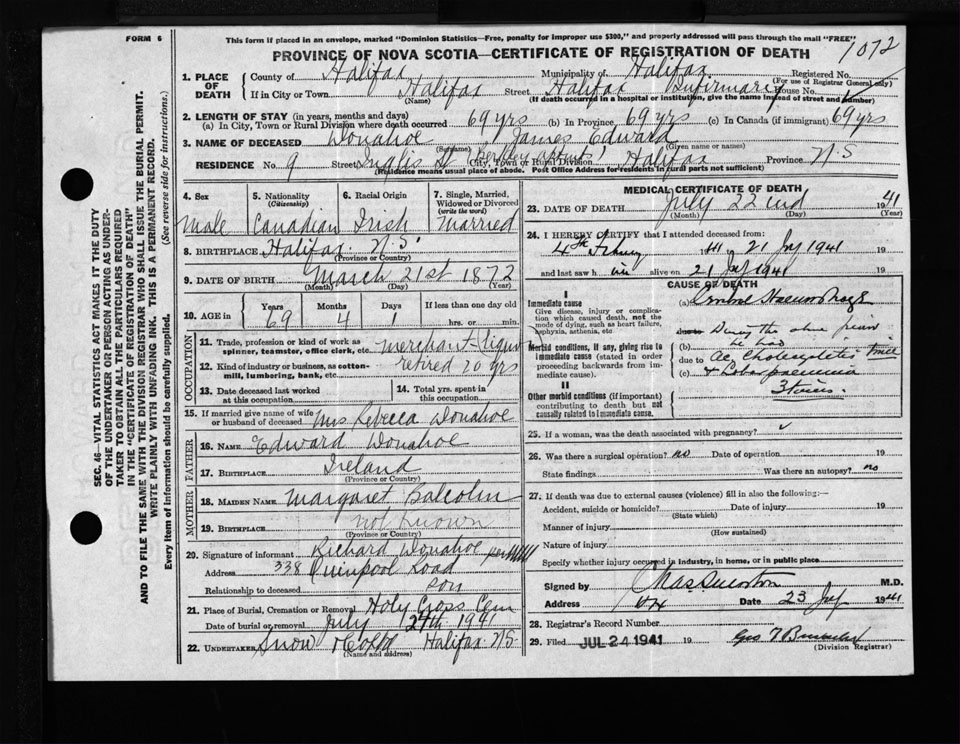 FORM 6
This form if placed in an envelope, marked "Dominion Statistics—Free, penalty for improper use $300," and properly addressed will pass through the mail "FREE"
PROVINCE OF NOVA SCOTIA—CERTIFICATE OF REGISTRATION OF DEATH
1072
1. PLACE OF DEATH
County of Halifax Municipality of Halifax Registered No.
(For use of Registrar General only)
If in City or Town Halifax Street Halifax Infirmary House No.
(Name) (If death occurred in a hospital or institution, give the name instead of street and number)
2. LENGTH OF STAY (in years, months and days)
(a) In City, Town or Rural Division where death occurred 69 yrs (b) In Province 69 yrs (c) In Canada (if immigrant) 69 yrs
3. NAME OF DECEASED Donahoe James Edward
(Surname) (Given name or names)
RESIDENCE No. 9 Street Inglis St City, Town or Rural Division Halifax Province N.S
(Residence means usual place of abode. Post Office Address for residents in rural parts not sufficient)
4. Sex Male
5. Nationality (Citizenship) Canadian
6. Racial Origin Irish
7. Single, Married, Widowed or Divorced (write the word) Married
8. BIRTHPLACE Halifax N.S.
(Province or Country)
9. DATE OF BIRTH March 21st 1872
(Month) (Day) (Year)
10. AGE in Years 69 Months 4 Days 1 If less than one day old hrs. or min.
OCCUPATION
11. Trade, profession or kind of work as spinner, teamster, office clerk, etc. Merchant - Liquor
12. Kind of industry or business, as cotton-mill, lumbering, bank, etc. retired 20 yrs
13. Date deceased last worked at this occupation
14. Total yrs. spent in this occupation
15. If married give name of wife or husband of deceased Mrs Rebecca Donahoe
FATHER
16. NAME Edward Donahoe
17. BIRTHPLACE Ireland
(Province or Country)
MOTHER
18. MAIDEN NAME Margaret Balcolm
19. BIRTHPLACE not known
(Province or Country)
20. Signature of informant Richard Donahoe per
Address 338 Quinpool Road
Relationship to deceased son
21. Place of Burial, Cremation or Removal Holy Cross Cem
Date of burial or removal July 24th 1941
22. UNDERTAKER Snow & Co Ltd Halifax N.S
(Name and address)
MEDICAL CERTIFICATE OF DEATH
23. DATE OF DEATH July 22nd 1941
(Month) (Day)
24. I HEREBY CERTIFY that I attended deceased from:
41 21 July 1941
and last saw h im alive on 21 July 1941 19
CAUSE OF DEATH
I
Immediate cause
Give disease, injury or complication which caused death, not the mode of dying, such as heart failure, asphyxia, asthenia, etc
(a) Haemorrhage
During the above
Morbid conditions, if any, giving rise to immediate cause (stated in order proceeding backwards from immediate cause).
(b) he had
due to Ac. Cholecystitis
(c) & Lobar pneumonia
3 times.
II
Other morbid conditions (if important) contributing to death but not causally related to immediate cause.
25. If a woman, was the death associated with pregnancy?
26. Was there a surgical operation? no Date of operation 19
State findings Was there an autopsy? no
27. If death was due to external causes (violence) fill in also the following:—
Accident, suicide or homicide? Date of injury 19
(State which)
Manner of injury
(How sustained)
Nature of injury
Specify whether injury occurred in industry, in home, or in public place
Signed by Chas S Morton M.D.
Address Hx Date 23 July 1941
28. Registrar's Record Number
29. Filed JUL 24 1941 19
(Division Registrar)
SEC. 46—VITAL STATISTICS ACT MAKES IT THE DUTY
OF THE UNDERTAKER OR PERSON ACTING AS UNDER-
TAKER TO OBTAIN ALL THE PARTICULARS REQUIRED
IN THE "CERTIFICATE OF REGISTRATION OF DEATH"
AND TO FILE THE SAME WITH THE DIVISION REGISTRAR WHO SHALL ISSUE THE BURIAL PERMIT.
WRITE PLAINLY WITH UNFADING INK. THIS IS A PERMANENT RECORD.
Every item of information should be carefully supplied. (See reverse side for instructions.)